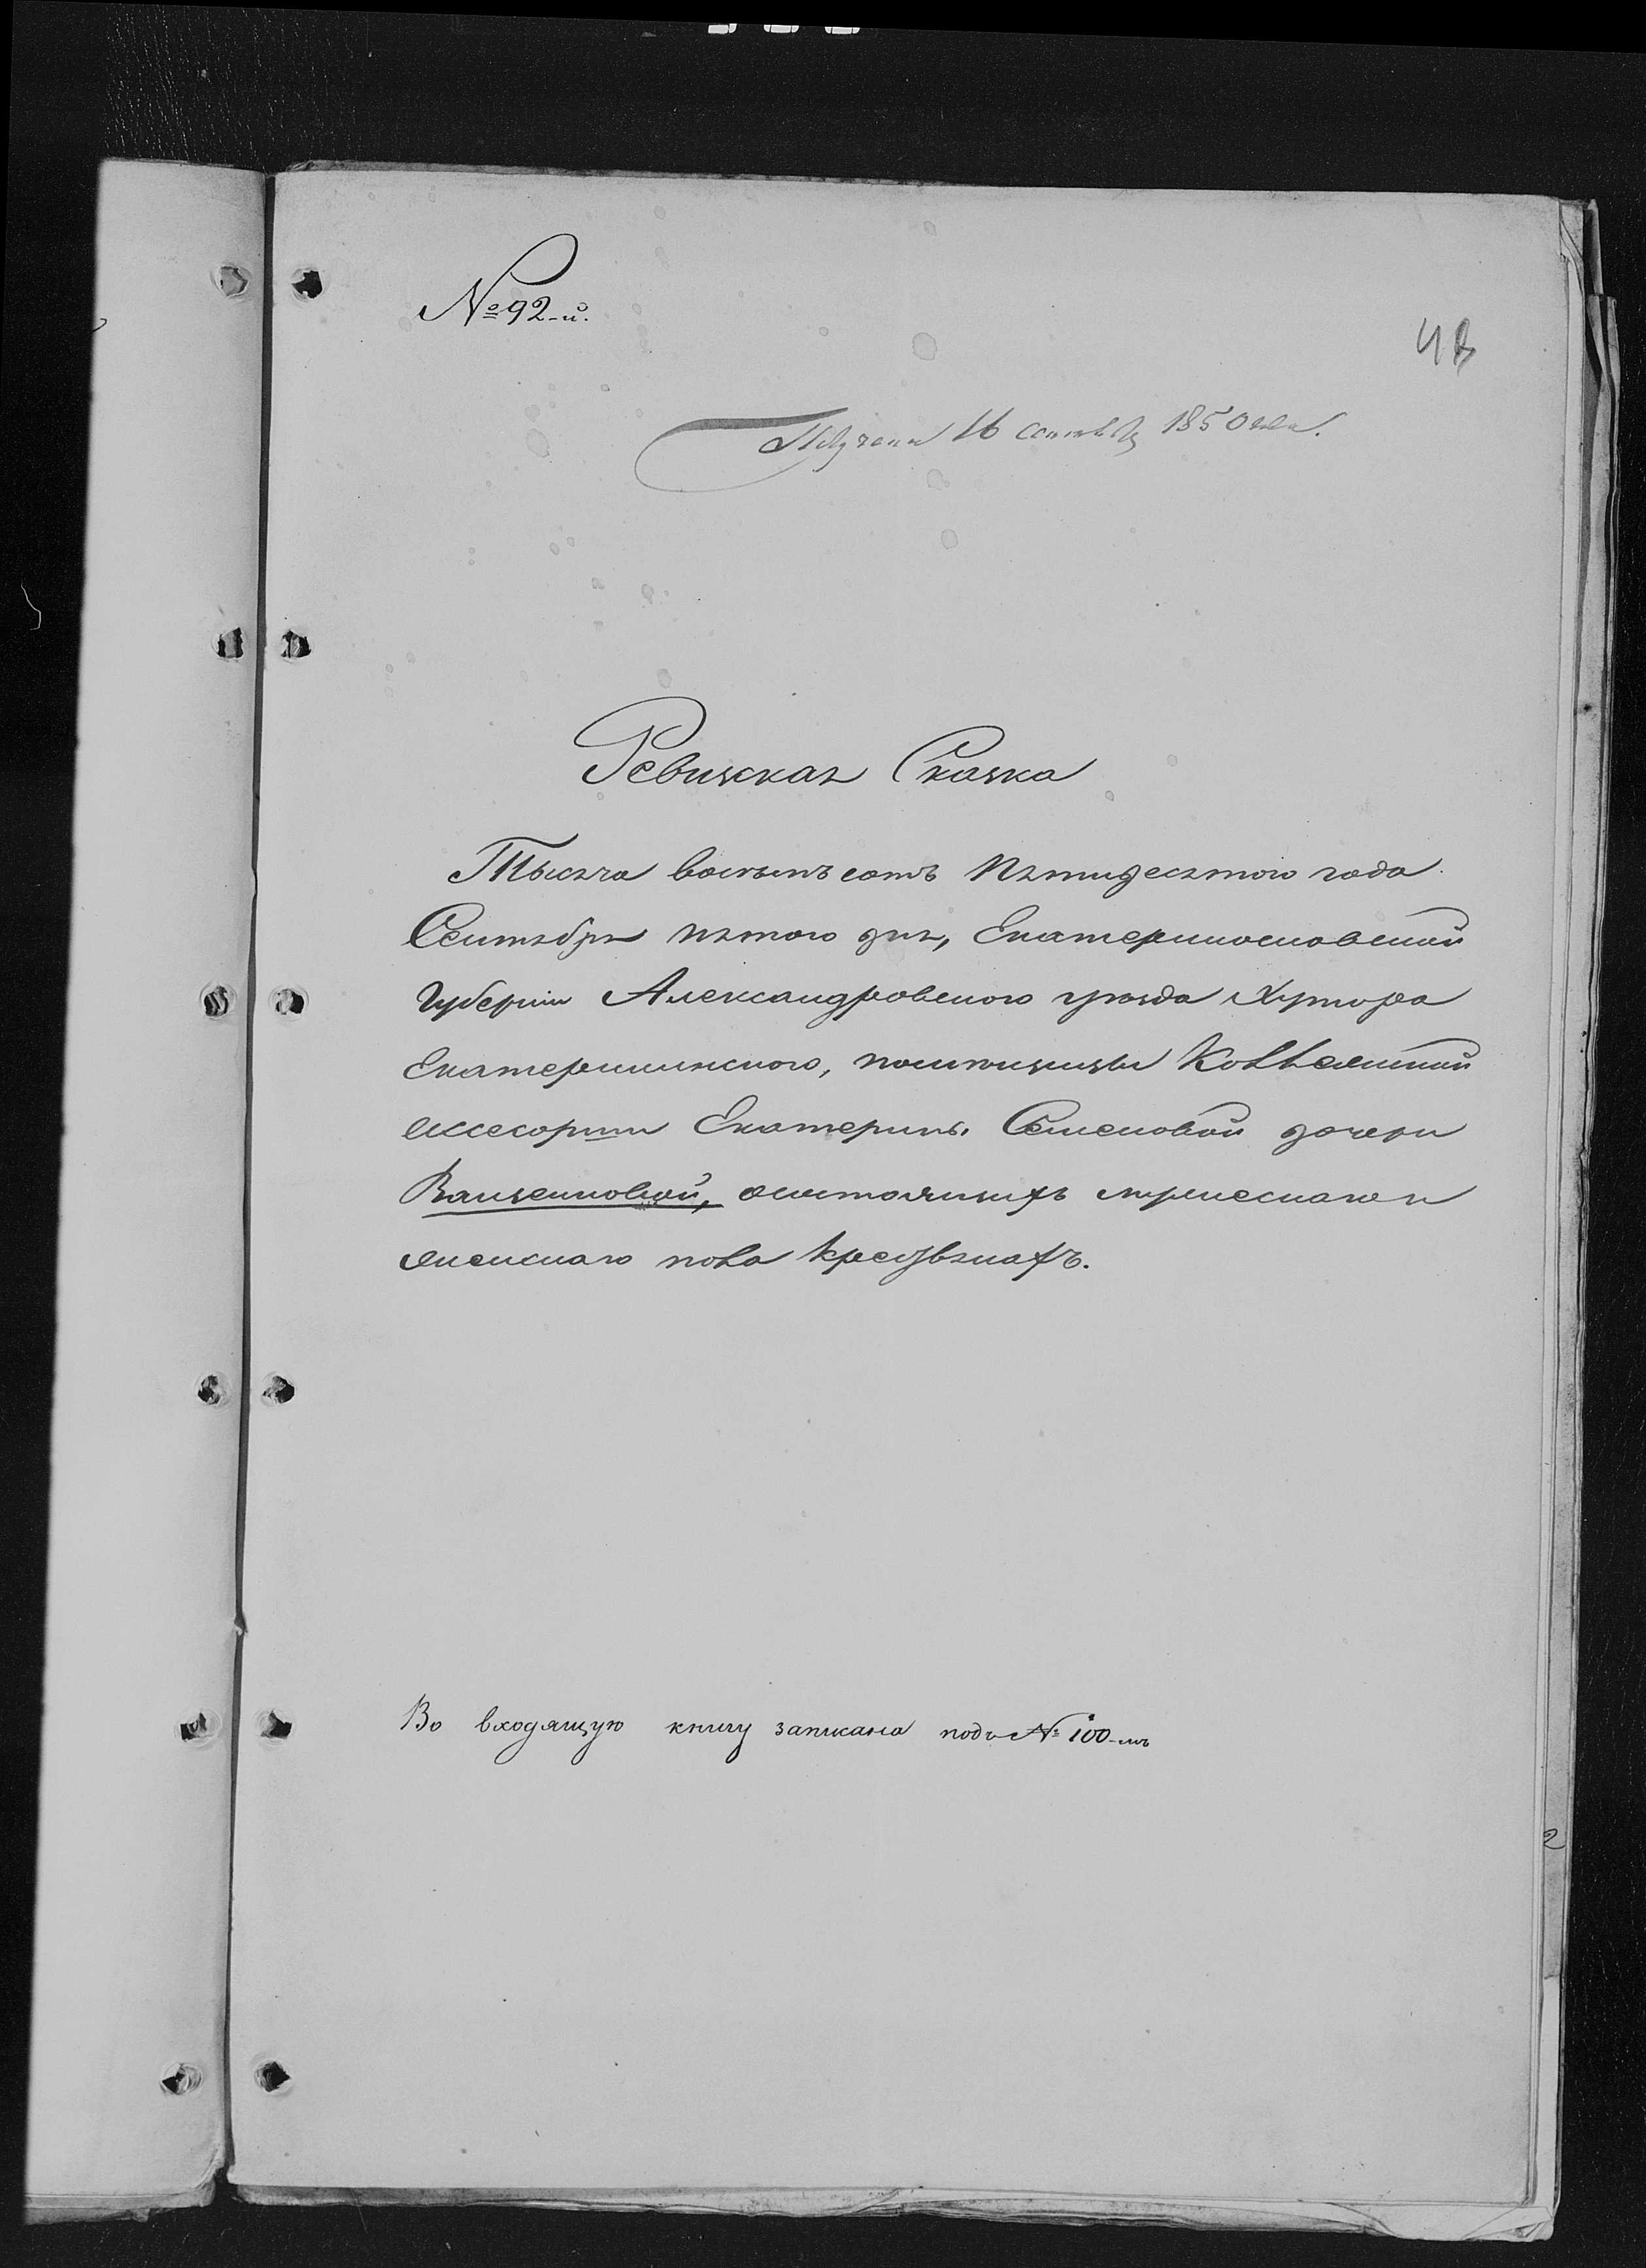 № 92-й.
Получена 16 сентября 1850 года.
Ревизская Сказка
Тысяча восемь сотъ пятидесятого года
Сентября пятого дня, Екатеринославской
Губернии Александровского уѣзда Хутора
Екатерининского, помещицы Коллежской
ассесорши Екатерины Семеновой дочери
состоящихъ мужескаго и
женскаго пола крестьянахъ.
Во входящую книгу записана подъ № 100-мъ
2